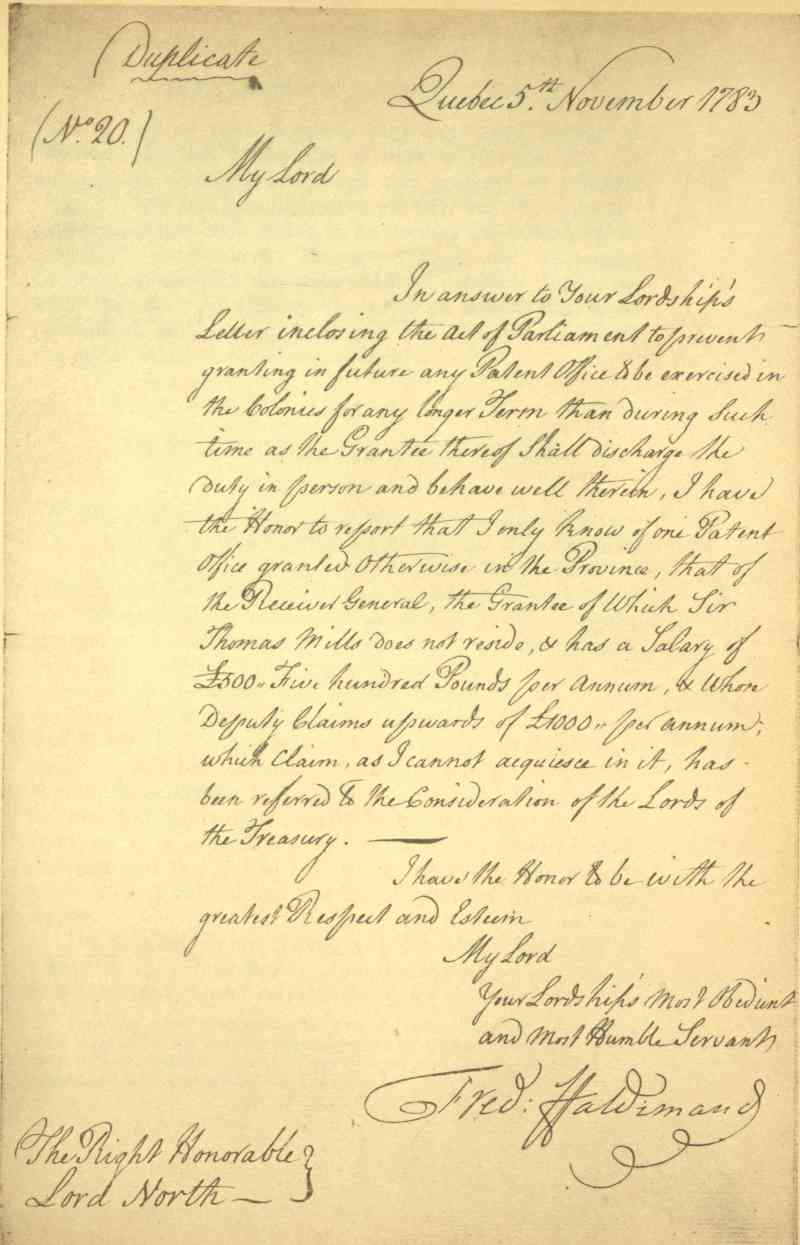 Duplicate
Quebec 5.th November 1783
(No. 20.)
My Lord
In answer to Your Lordship's
Letter inclosing the Act of Parliament to prevent
granting in future any Patent Office to be exercised in
the Colonies for any longer Term than during Such
time as the Grantee thereof Shall discharge the
duty in person and behave well therein, I have
the Honor to report that I only know of one Patent
Office granted Otherwise in the Province, that of
the Receiver General, the Grantee of Which Sir
Thomas Mills does not reside, & has a Salary of
£500" Five hundred Pounds per Annum, & Whose
Deputy Claims upwards of £1000" per annum;
which Claim, as I cannot acquiesce in it, has
been referred to the Consideration of the Lords of
the Treasury. —
I have the Honor to be with the
greatest Respect and Esteem
My Lord
Your Lordship's Most Obedient
and Most Humble Servant
Fred: Haldimand
The Right Honorable }
Lord North —